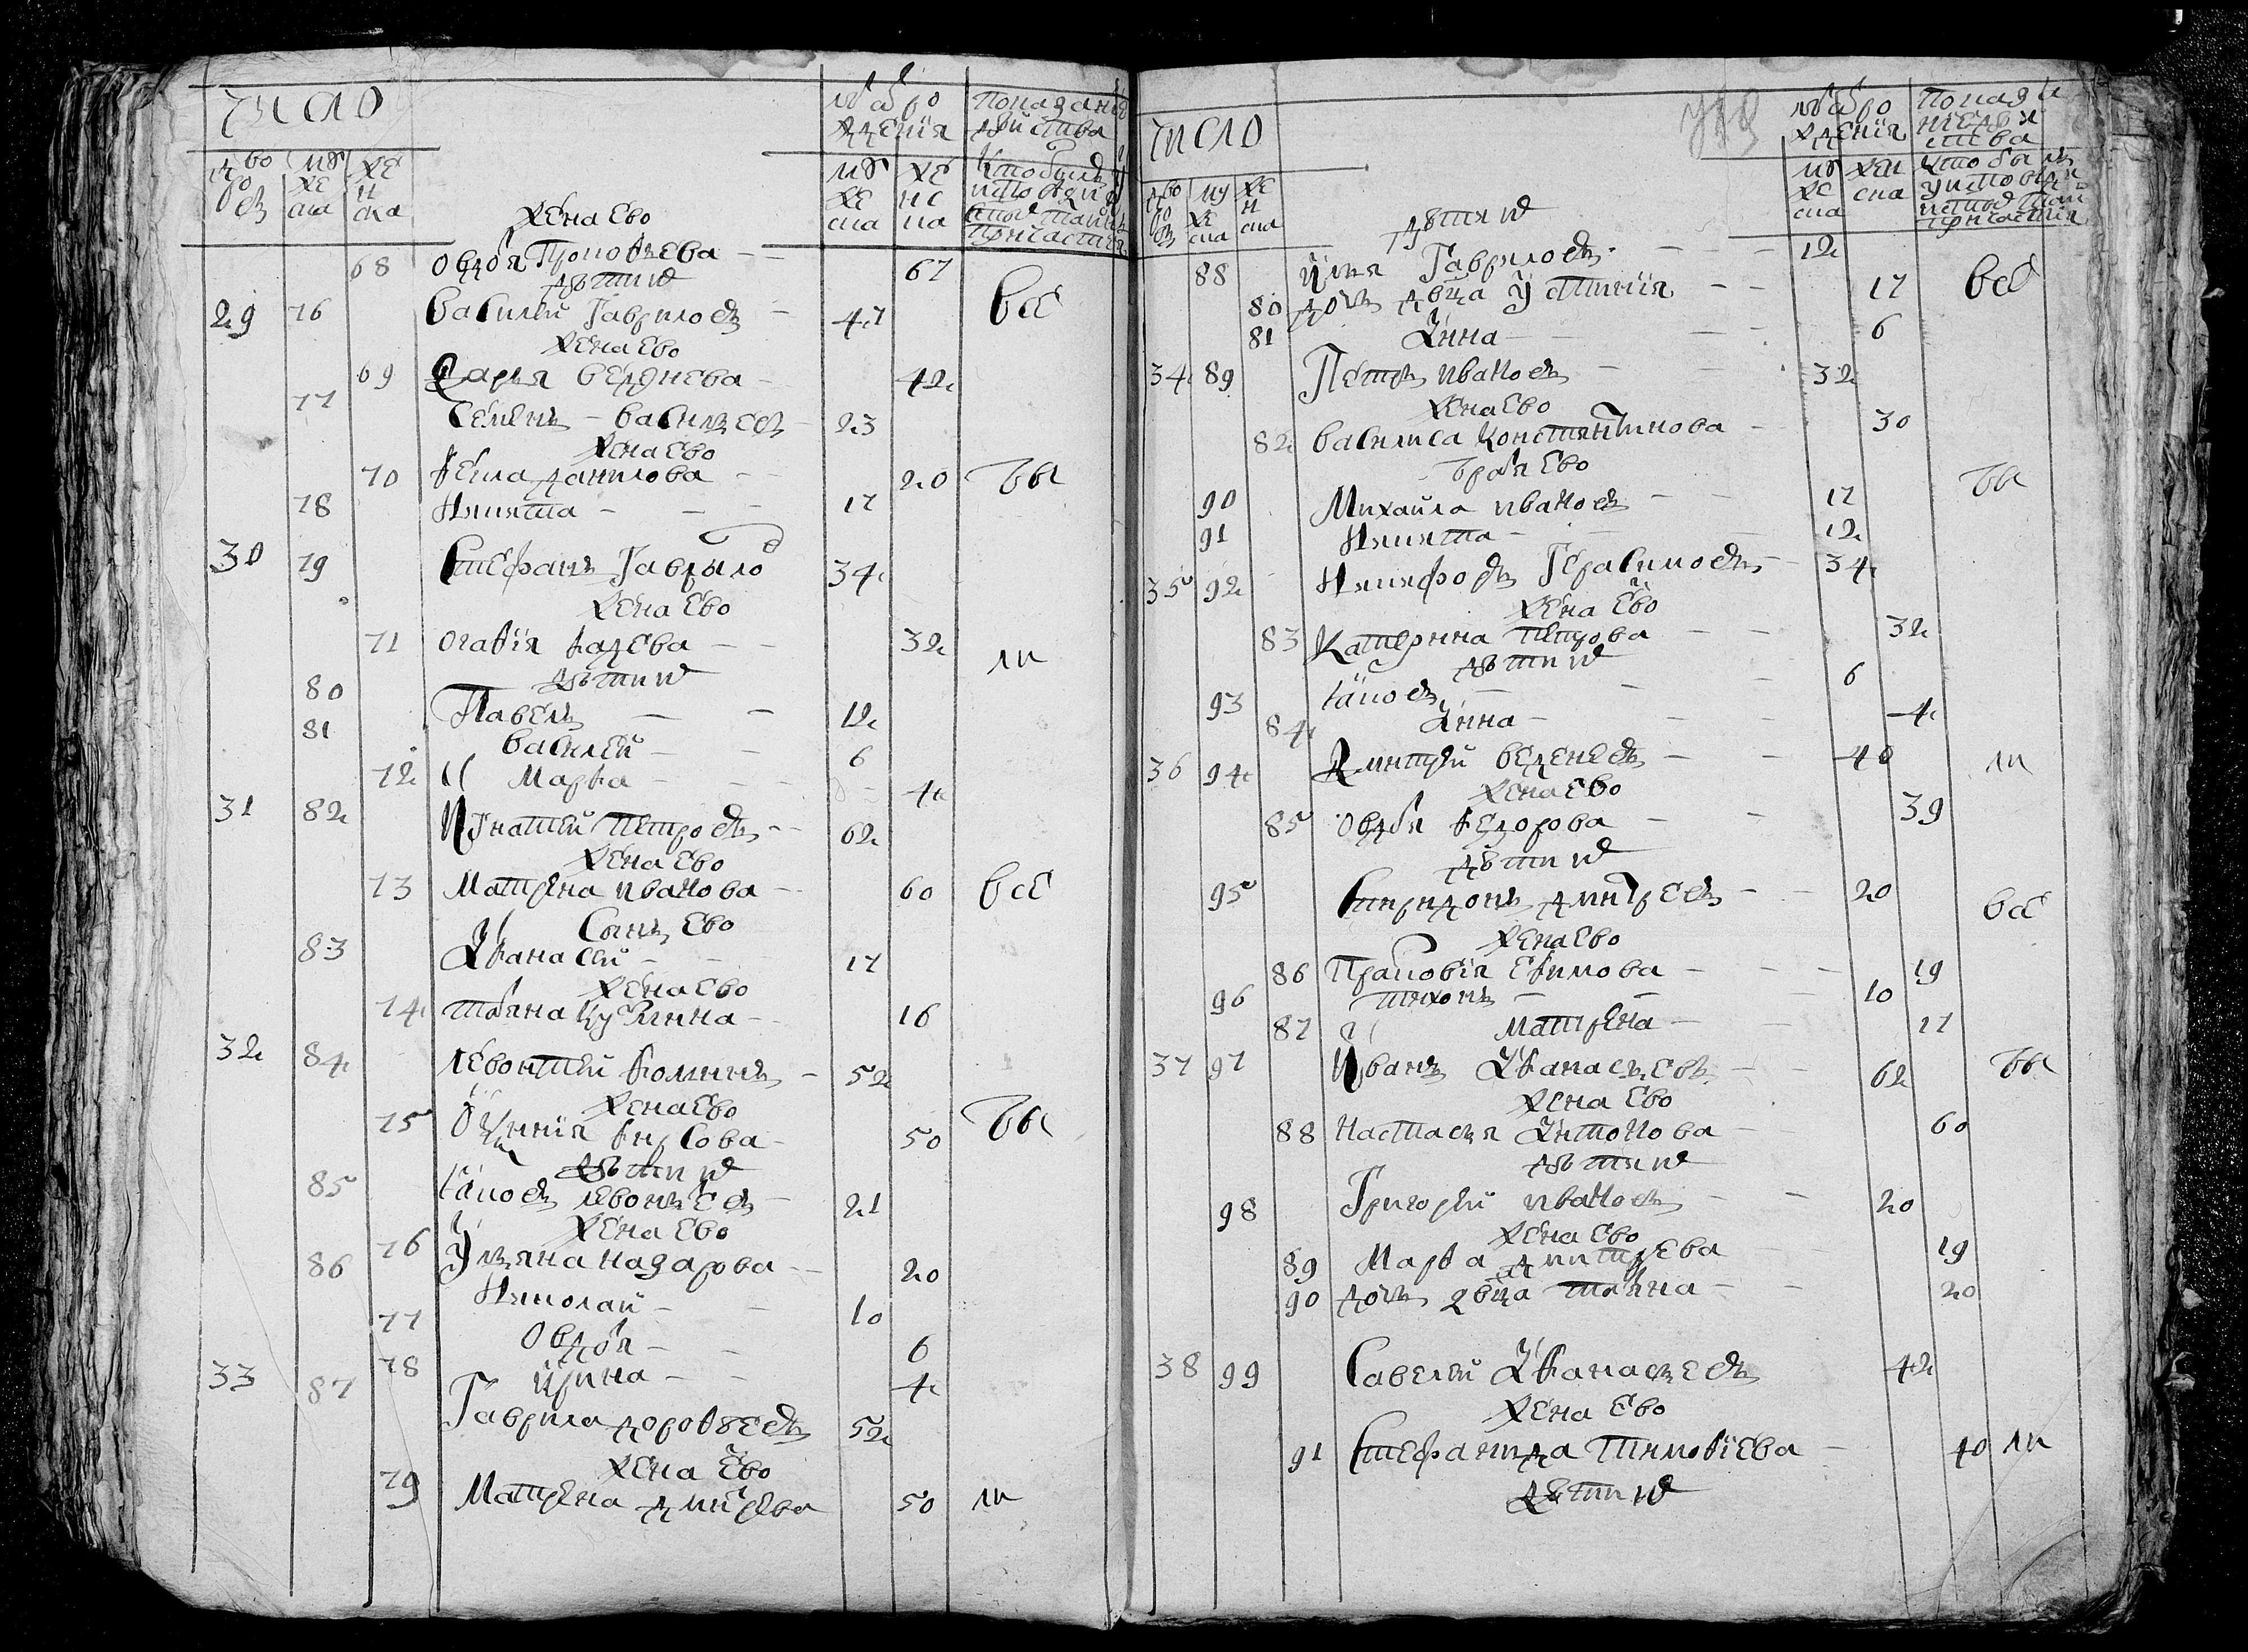 число
дво
ро
въ
му
же
ска
же
н
ска
мѣ ро
жденїя
му
же
ска
же
нс
ка
показанїе
действа
Кто былъ у
исповѣди и
святаго
причастия
жена Ево
68 овдотя Прокофьева — — 67
дѣти их
29 76 василей Гаврилов — 47 всѣ
жена Ево
69 Дарья — 42
77 Семенъ васильевъ — 23
жена Ево
70 Фекла данилова — — 20 бы
78 Никита — — — 17
30 79 Стефанъ Гаврилов 34
жена Ево
71 Огафїя Фадеева — — 32 ли
дѣти их
80 Павелъ — — 12
81 василей — — 6
72 Марфа — — — 4
31 82 Игнатей Петровъ — — 62
жена Ево
73 Матрена иванова — 60 всѣ
Сынъ Ево
83 Афанасей — — 17
жена Ево
74 татяна Кузмина — 16
32 84 левонтей Фоминъ — 52
жена Ево
75 Фирсова — 50 бы
дѣти их
85 Яковъ левоньевъ — 21
жена Ево
76 Ульяна назарова — — 20
86 Николай — — 10
77 Овдотя — — 6
78 Ирина — — 4
33 87 Гаврила дорофѣевъ 52
жена Ево
79 Матрена дмитрева 50 ли
число
дво
ро
въ
му
же
ска
же
н
ска
мѣ ро
жденїя
му
же
ска
жен
ска
показа
нїе дѣй
ства
Кто былъ
у исповѣди
и святаго
причастия
дѣти их
88 Илья Гавриловъ — — 12
80 дочь дѣвца Устинїя — — 17 всѣ
81 Анна — — 6
34 89 Петръ ивановъ — — 32
жена Ево
82 василиса Константинова — 30
братя Ево
90 Михайла ивановъ — — 17 бы
91 Никита — — — 12
35 92 Никифоръ Герасимовъ — 34
жена Ево
83 Катерина петрова — — 32
дѣти их
93 Яковъ — — — 6
84 Анна — — — 4
36 94 Дмитрей — — 40 ли
жена Ево
85 Овдотя Федорова — — 39
дѣти их
95 Спиридонъ дмитревъ — — 20 всѣ
жена Ево
86 Прасковїя Ефимова — — — 19
96 тихонъ — — — 10
87 матрена — — 17
37 97 Иванъ Афанасьевъ — — 62 бы
жена Ево
88 Настасья Антонова — 60
дѣти их
98 Григорей ивановъ — — 20
жена Ево
89 Марфа дмитрева — 19
90 дочь двца татяна — — 20
38 99 Савелей Афанасьевъ 42
жена Ево
91 Стефанида тимофїева — 40 ли
дѣти их